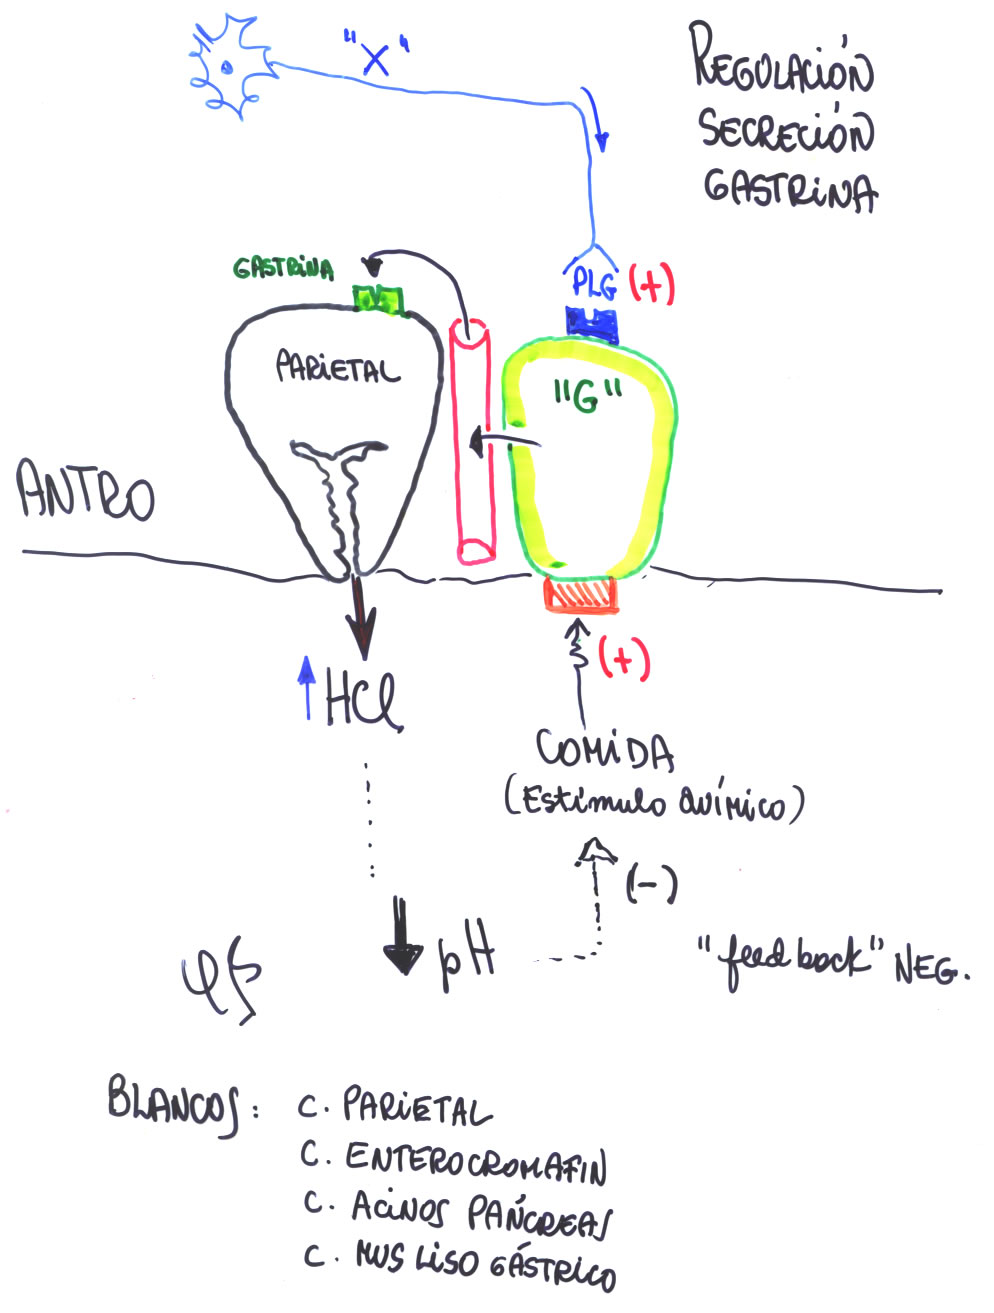 "X"
REGULACIÓN
SECRECIÓN
GASTRINA
GASTRINA
PLG (+)
PARIETAL
"G"
ANTRO
(+)
↑ HCl
COMIDA
(Estímulo químico)
(-)
↓ pH
"feedback" NEG.
BLANCOS: C. PARIETAL
C. ENTEROCROMAFIN
C. ACINOS PÁNCREAS
C. MUS LISO GÁSTRICO